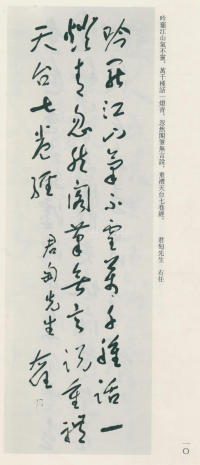 吟罷江山氣不靈，萬千種話一燈青。忽然閣筆無言說，重禮天台七卷經。
君匋先生　右任
吟罷江山氣不靈萬千種話一
燈青忽然閣筆無言說重禮
天台七卷經　君匋先生　右任
一〇